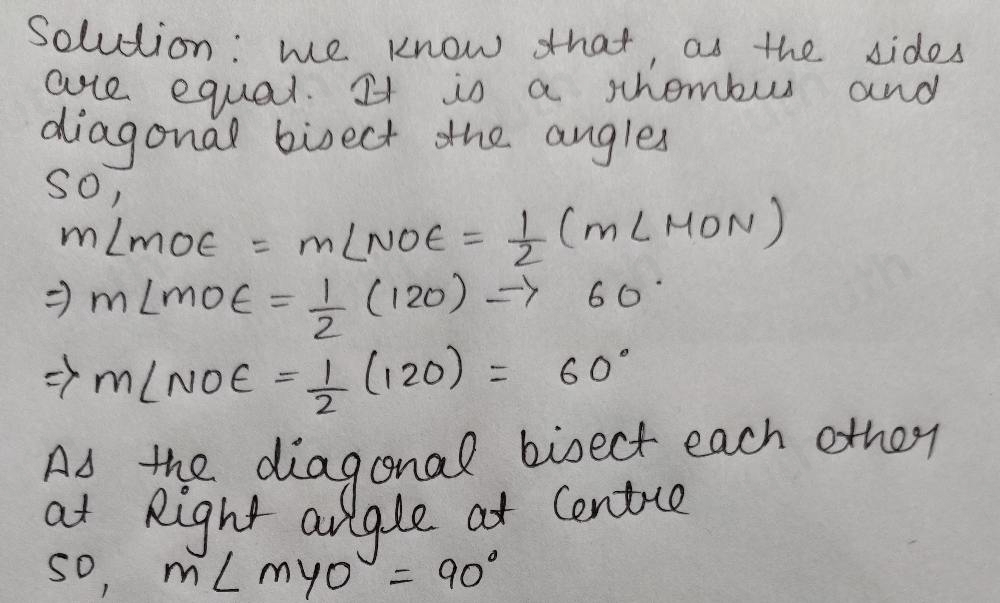 Solution: we know that, as the sides
are equal. It is a rhombus and
diagonal bisect the angles
SO,
m∠MOE = m∠NOE = 1/2 (m∠MON)
⇒ m∠MOE = 1/2 (120) → 60°
⇒ m∠NOE = 1/2 (120) = 60°
As the diagonal bisect each other
at Right angle at Centre
SO, m∠MYO = 90°